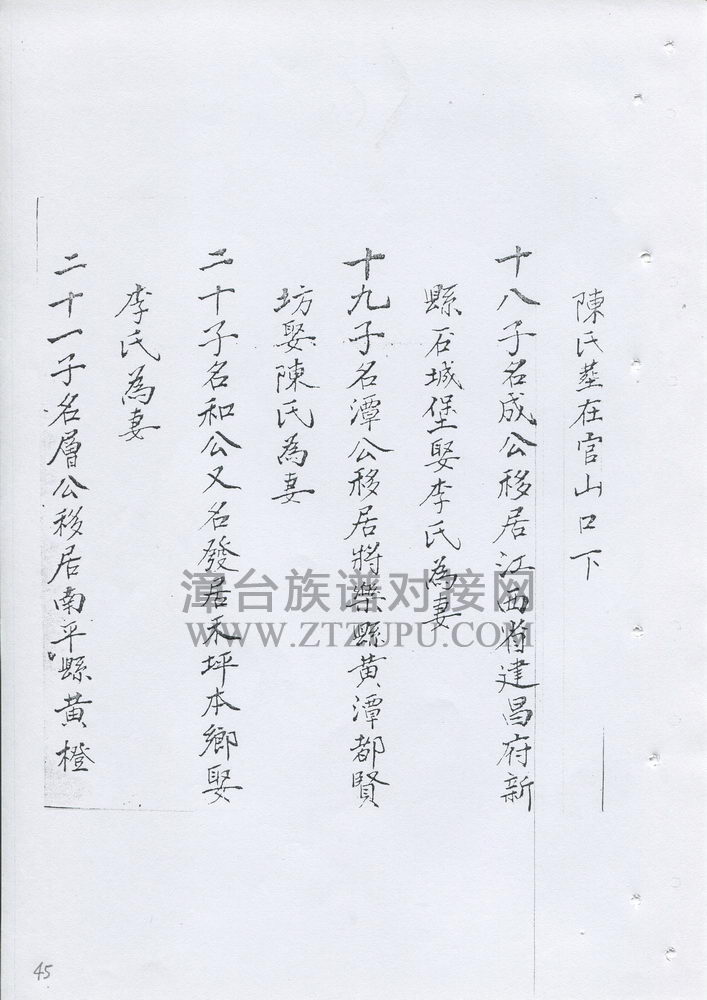 陳氏墓在官山口下
十八子名成公移居江西省建昌府新
縣石城堡娶李氏為妻
十九子名潭公移居將樂縣黄潭都賢
坊娶陳氏為妻
二十子名和公又名發居禾坪本鄉娶
李氏為妻
二十一子名層公移居南平縣黄橙
漳台族谱对接网
WWW.ZTZUPU.COM
45